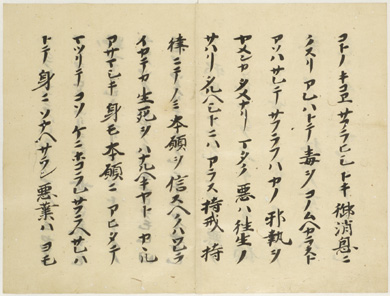 コトノキコエサフラヒシトキ御消息ニ
クスリアレハトテ毒ヲコノムヘカラスト
アソハサレテサフラフハカノ邪執ヲ
ヤメンカタメナリマタク悪ハ往生ノ
サハリタルヘシトニハアラス持戒持
律ニテノミ本願ヲ信スヘクハワレラ
イカテカ生死ヲハナルヘキヤトカヽル
アサマシキ身モ本願ニアヒタテ
マツリテコソケニホコラレサフラヘサレハ
トテ身ニソナヘサラン悪業ハヨモ